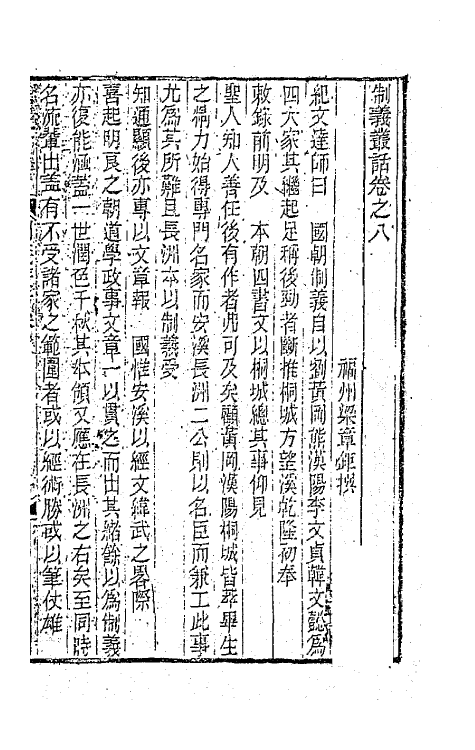 制義叢話卷之八
福州梁章鉅撰
紀文達師曰　國朝制義自以劉黃岡熊漢陽李文貞韓文懿為
四大家其繼起足稱後勁者斷推桐城方望溪乾隆初奉
敕錄前明及　本朝四書文以桐城總其事仰見
聖人知人善任後有作者弗可及矣顧黃岡漢陽桐城皆萃畢生
之精力始得專門名家而安溪長洲二公則以名臣而兼工此事
尤為其所難且長洲本以制義受
知通顯後亦專以文章報　國惟安溪以經文緯武之畧際
喜起明良之朝道學政事文章一以貫之而出其緒餘以為制義
亦復能涵蓋一世潤色千秋其本領又應在長洲之右矣至同時
名流輩出蓋有不受諸家之範圍者或以經術勝或以筆仗雄